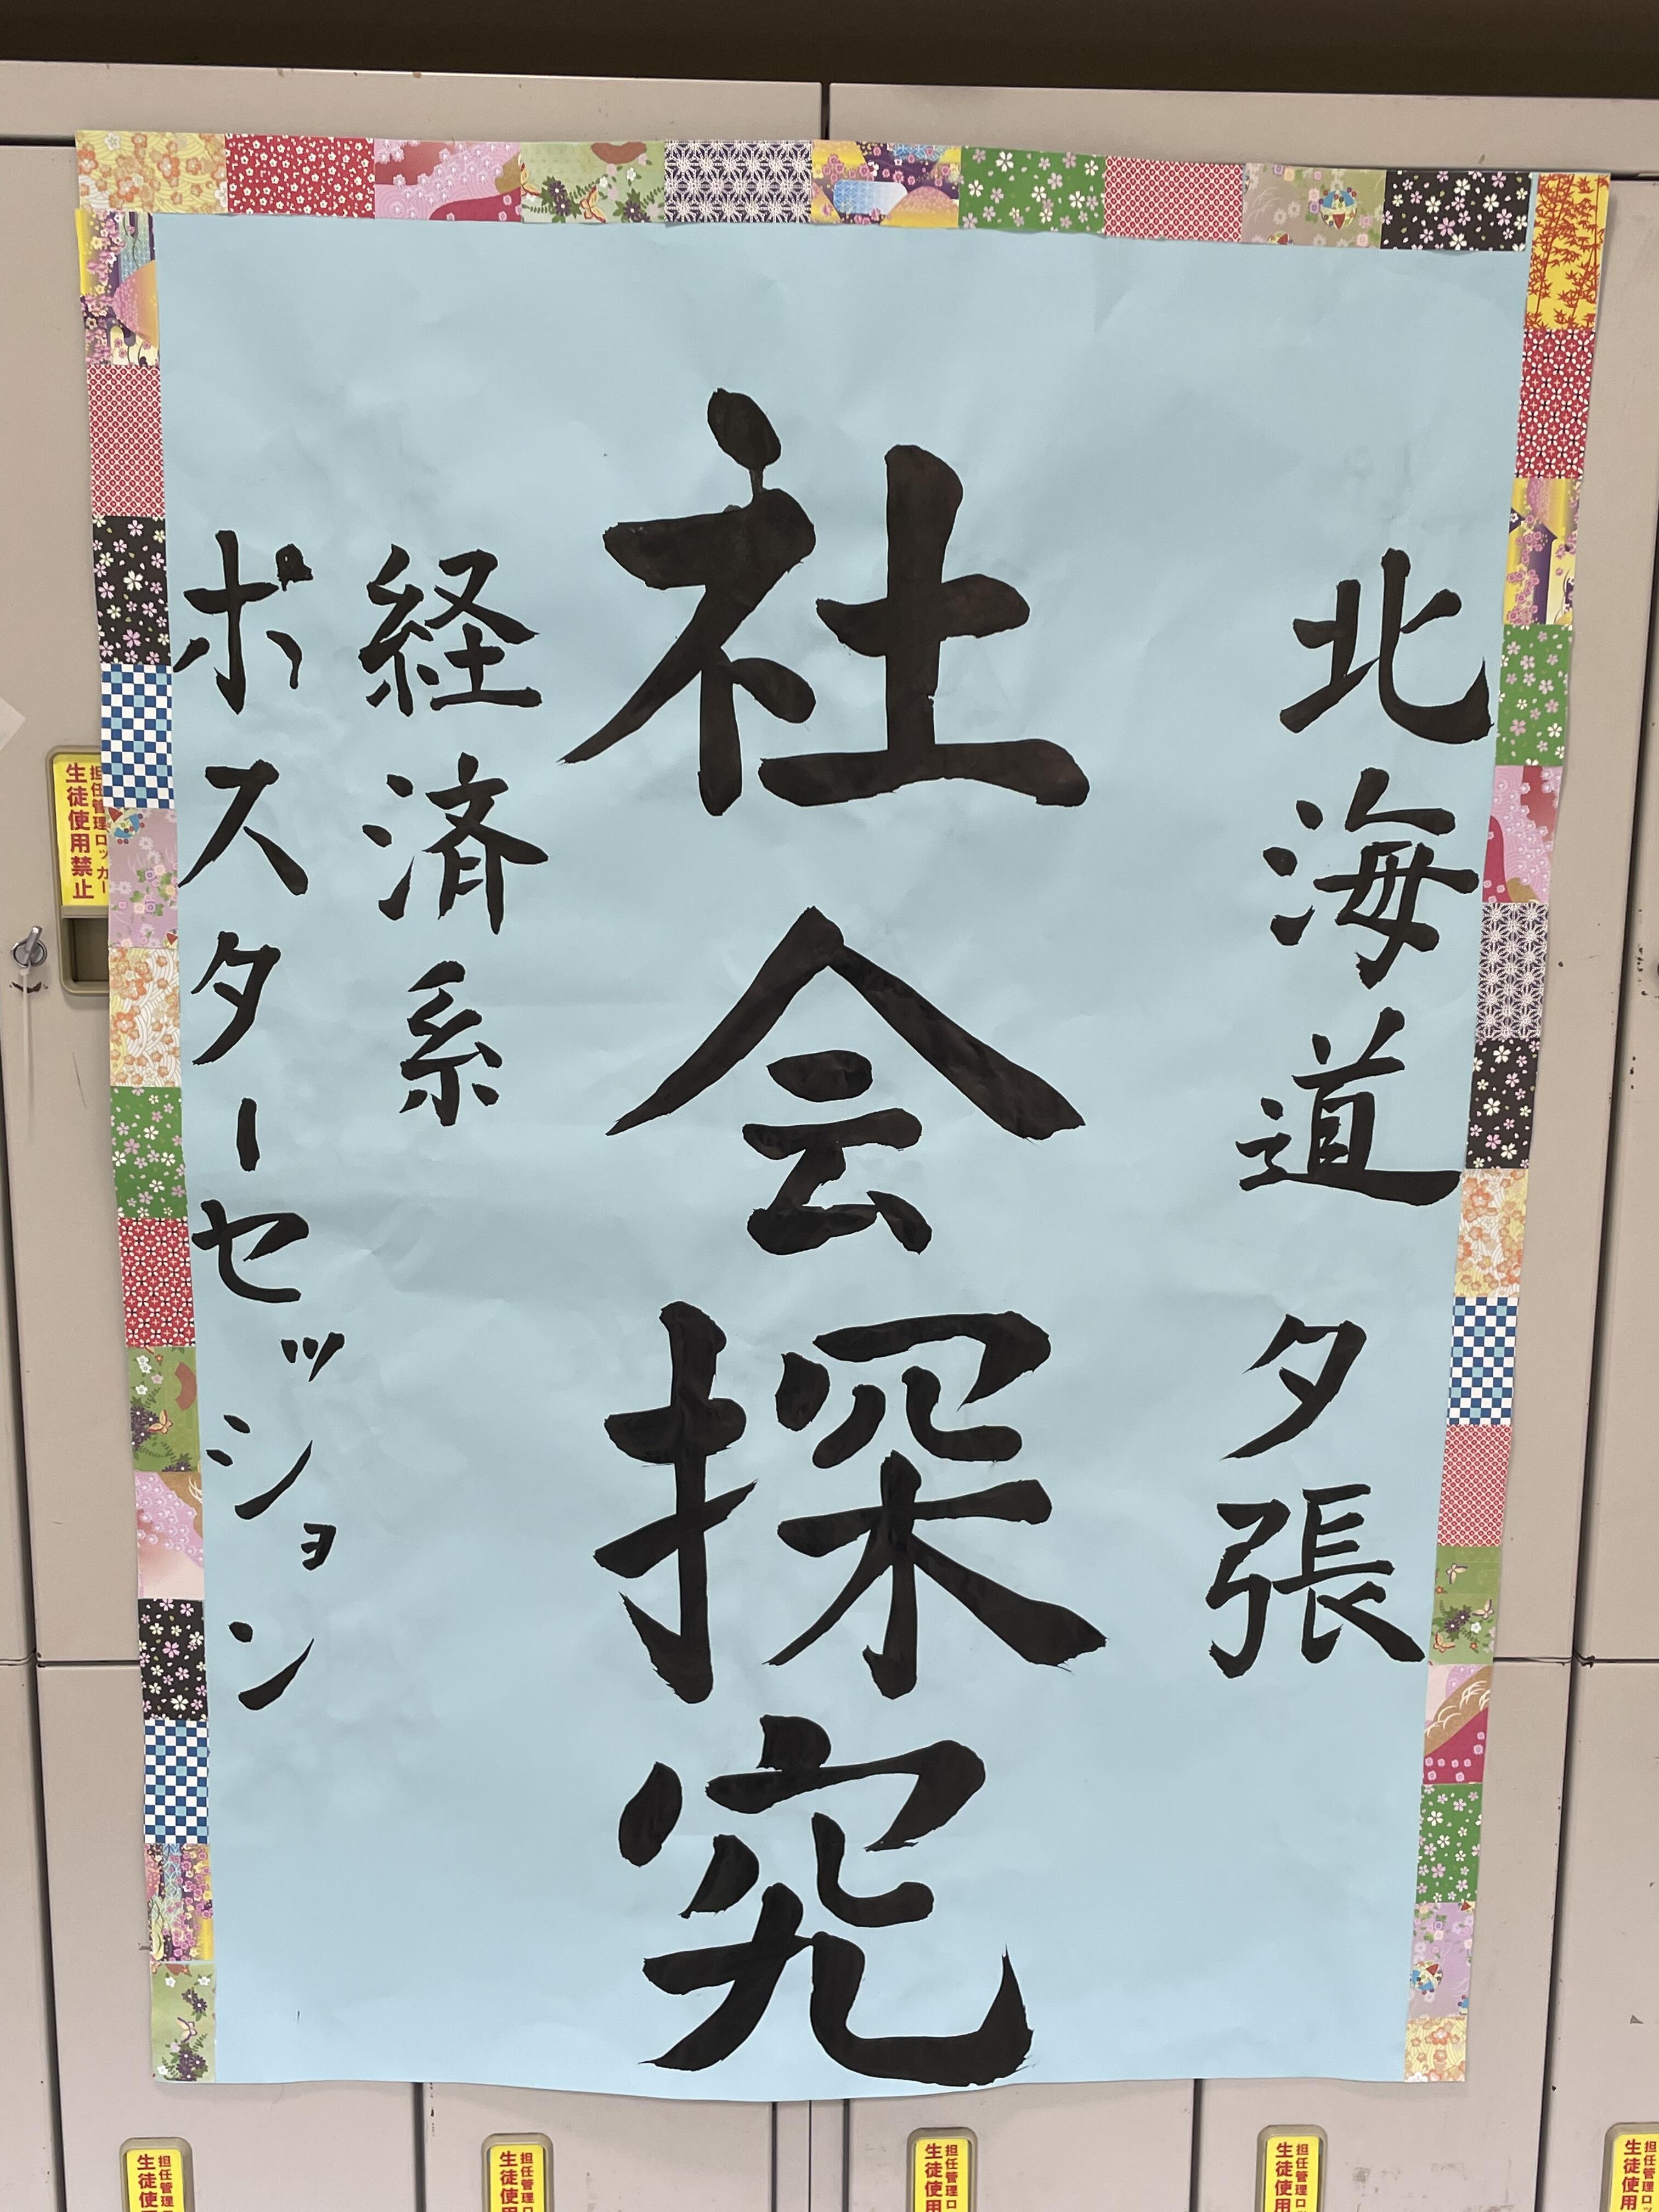 北海道 夕張
社会探究
経済系
ポスターセッション
担任管理ロッカー
生徒使用禁止
担任管理
生徒使
担任管理ロ
生徒使用
担任管理ロ
生徒使用
担任管理ロ
生徒使用
担任管理ロ
生徒使用